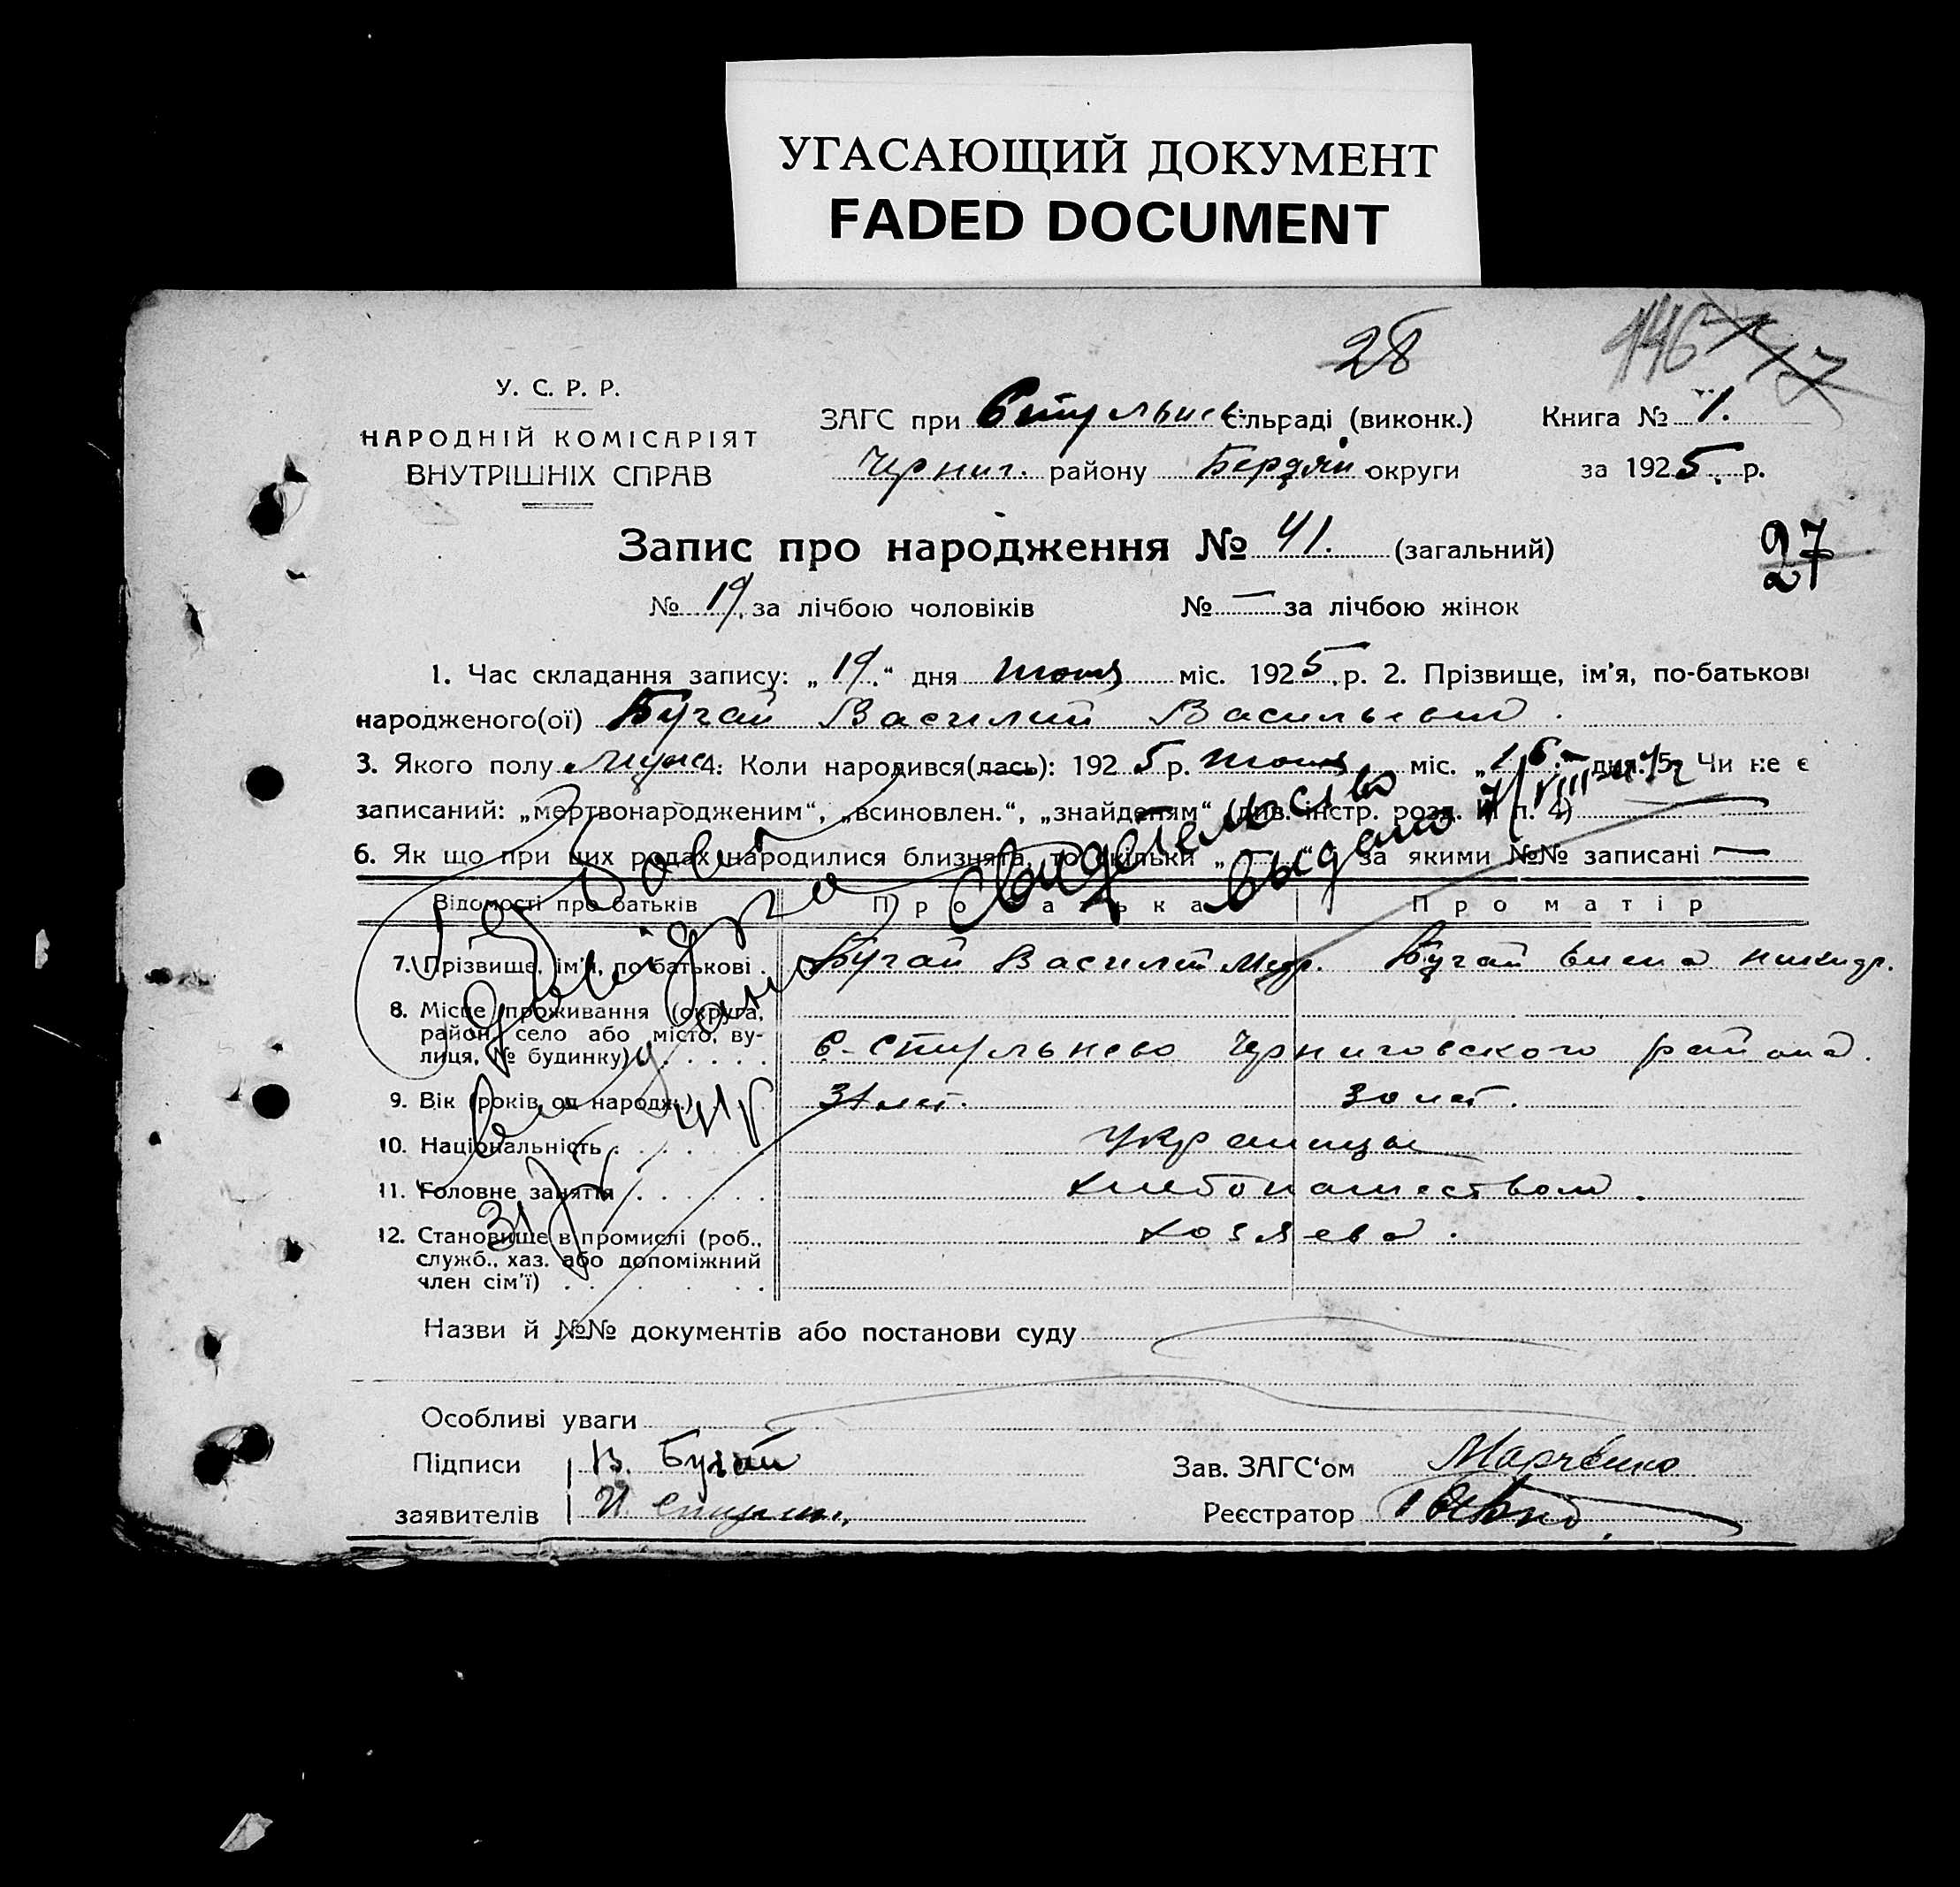 УГАСАЮЩИЙ ДОКУМЕНТ
FADED DOCUMENT
28
446
У. С. Р. Р.
НАРОДНІЙ КОМІСАРІЯТ
ВНУТРІШНІХ СПРАВ
ЗАГС при сільраді (виконк.) Книга № 1.
Черниг. району Бердян. округи за 1925. р.
Запис про народження № 41. (загальний)
27
№ 19. за лічбою чоловіків № — за лічбою жінок
1. Час складання запису: „19.“ дня июня міс. 1925. р. 2. Прізвище, ім'я, по-батькові
народженого(ої) Бугай Василий Васильевич.
3. Якого полу муж. 4. Коли народився(лась): 1925 р. июня міс. „16.“ дня. 5. Чи не є
записаний: „мертвонародженим“, „всиновлен.“, „знайдетям“ (див. інстр. розд. II п. 4) —
6. Як що при цих родах народилися близнята, то скільки „ “ і за якими №№ записані —
Свидетельство
выдано
Відомості про батьків Про батька Про матір
7. Прізвище, ім'я, по батькові . Бугай Василий Бугай
8. Місце проживання (округа,
район, село або місто, ву-
лиця, № будинку) . . . . . с. Стульнево Черниговского района.
9. Вік (років од народж.) 31 лет. 30 лет.
10. Національність . . . . . . украинцы
11. Головне заняття . . . . . . хлебопашеством.
12. Становище в промислі (роб.,
служб., хаз. або допоміжний
член сім'ї) . . . . . . хозяева.
Назви й №№ документів або постанови суду
Особливі уваги
Підписи В. Бугай Зав. ЗАГС'ом Марченко
заявителів Реєстратор